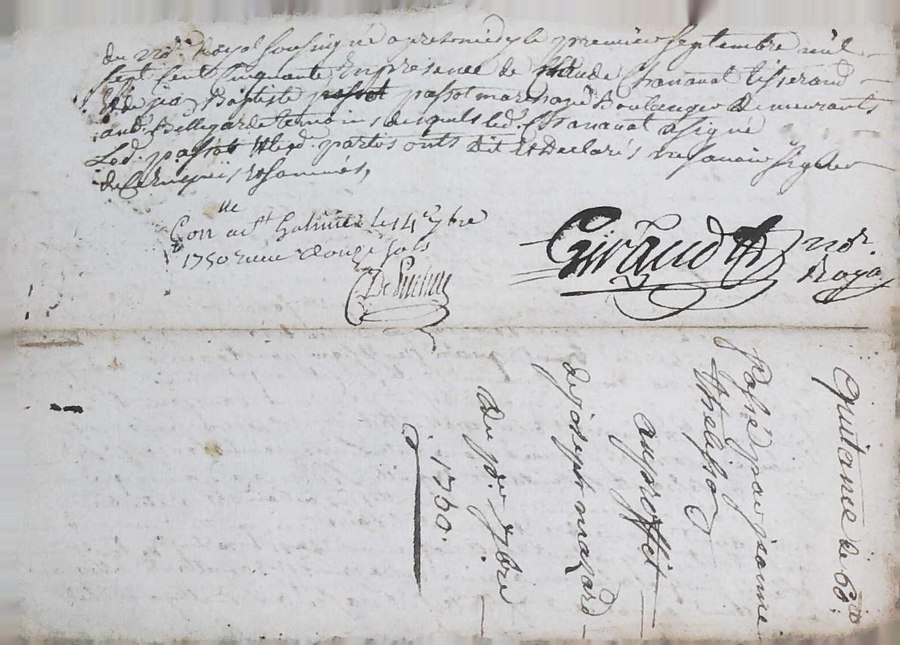 du no.re Royal soussigné apres midy le premier septembre mil
sept cent cinquante En presence de Claude Chanavat tisserand
et de Jean Baptiste passot marchand Boulenger Demeurants
aud. Bellegarde temoins, desquels led. Chanavat a signé
Led. passot et lesd. parties onts dit Et Declarés ne savoir signer
de ce Enquis Et sommés,
Con.lle a St Galmier le 14e 7bre
1750 recu douze sols
Giraud no.re
Royal
Quitance de 60 tt
Passé par jeanne
thelisson
au proffit
de joseph mazard
du p.er 7bre
1750.